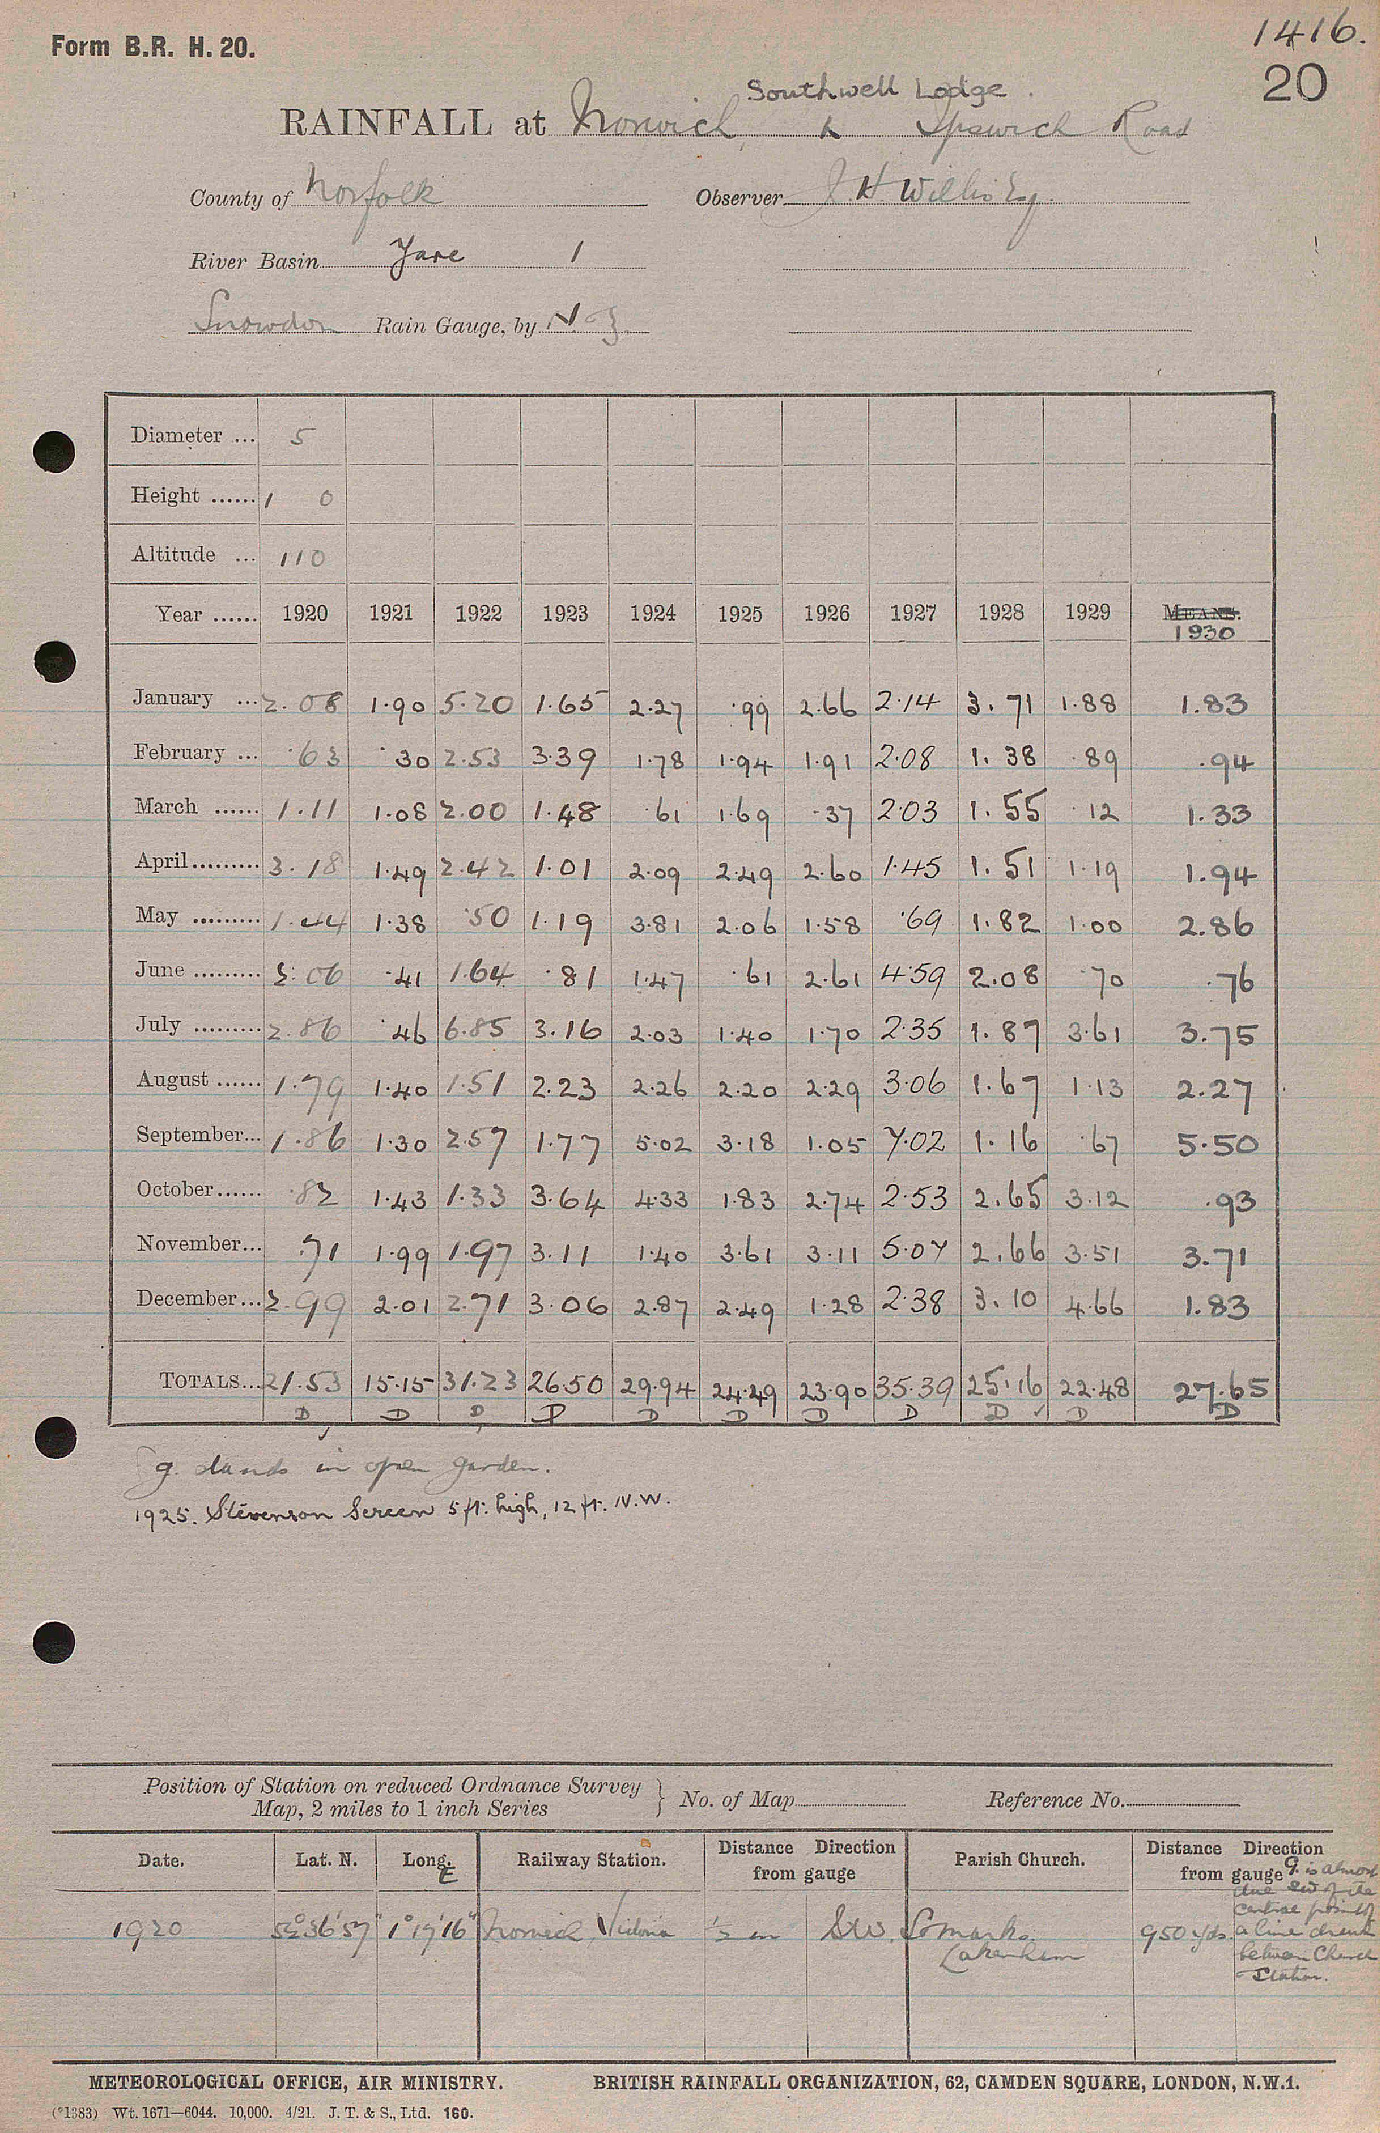 Form B.R. H. 20.
1416.
20
Southwell Lodge.
RAINFALL at Norwich, Ipswich Road
County of Norfolk Observer J. H Willis Esq.
River Basin Yare 1
Snowdon Rain Gauge, by N
Diameter ... 5
Height ...... 1 0
Altitude ... 110
Year ...... 1920 1921 1922 1923 1924 1925 1926 1927 1928 1929 MEANS.
1930
January ... 2.08 1.90 5.20 1.65 2.27 .99 2.66 2.14 3.71 1.88 1.83
February ... .63 .30 2.53 3.39 1.78 1.94 1.91 2.08 1.38 .89 .94
March ...... 1.11 1.08 2.00 1.48 .61 1.69 .37 2.03 1.55 .12 1.33
April ......... 3.18 1.49 2.42 1.01 2.09 2.49 2.60 1.45 1.51 1.19 1.94
May ......... 1.44 1.38 .50 1.19 3.81 2.06 1.58 .69 1.82 1.00 2.86
June ......... 2.06 .41 1.64 .81 1.47 .61 2.61 4.59 2.08 .70 .76
July ......... 2.86 .46 6.85 3.16 2.03 1.40 1.70 2.35 1.87 3.61 3.75
August ...... 1.79 1.40 1.51 2.23 2.26 2.20 2.29 3.06 1.67 1.13 2.27
September... 1.86 1.30 2.57 1.77 5.02 3.18 1.05 7.02 1.16 .67 5.50
October...... .82 1.43 1.33 3.64 4.33 1.83 2.74 2.53 2.65 3.12 .93
November... .71 1.99 1.97 3.11 1.40 3.61 3.11 5.07 2.66 3.51 3.71
December... 2.99 2.01 2.71 3.06 2.87 2.49 1.28 2.38 3.10 4.66 1.83
TOTALS... 21.53 15.15 31.23 26.50 29.94 24.49 23.90 35.39 25.16 22.48 27.65
D D D D D D D D D ✓ D D
g. stands in open garden.
1925. Stevenson Screen 5 ft. high, 12 ft. N.W.
Position of Station on reduced Ordnance Survey
Map, 2 miles to 1 inch Series } No. of Map Reference No.
Date. Lat. N. Long. E Railway Station. Distance Direction from gauge Parish Church. Distance Direction from gauge
1920 52°36'57" 1°17'16" Norwich, Victoria ½ m SW. St Marks, Lakenham 950 yds.
g. is almost
due SW of the
centre point of
a line drawn
between Church
& Station.
METEOROLOGICAL OFFICE, AIR MINISTRY. BRITISH RAINFALL ORGANIZATION, 62, CAMDEN SQUARE, LONDON, N.W.1.
(*1383) Wt. 1671—6044. 10,000. 4/21. J. T. & S., Ltd. 160.